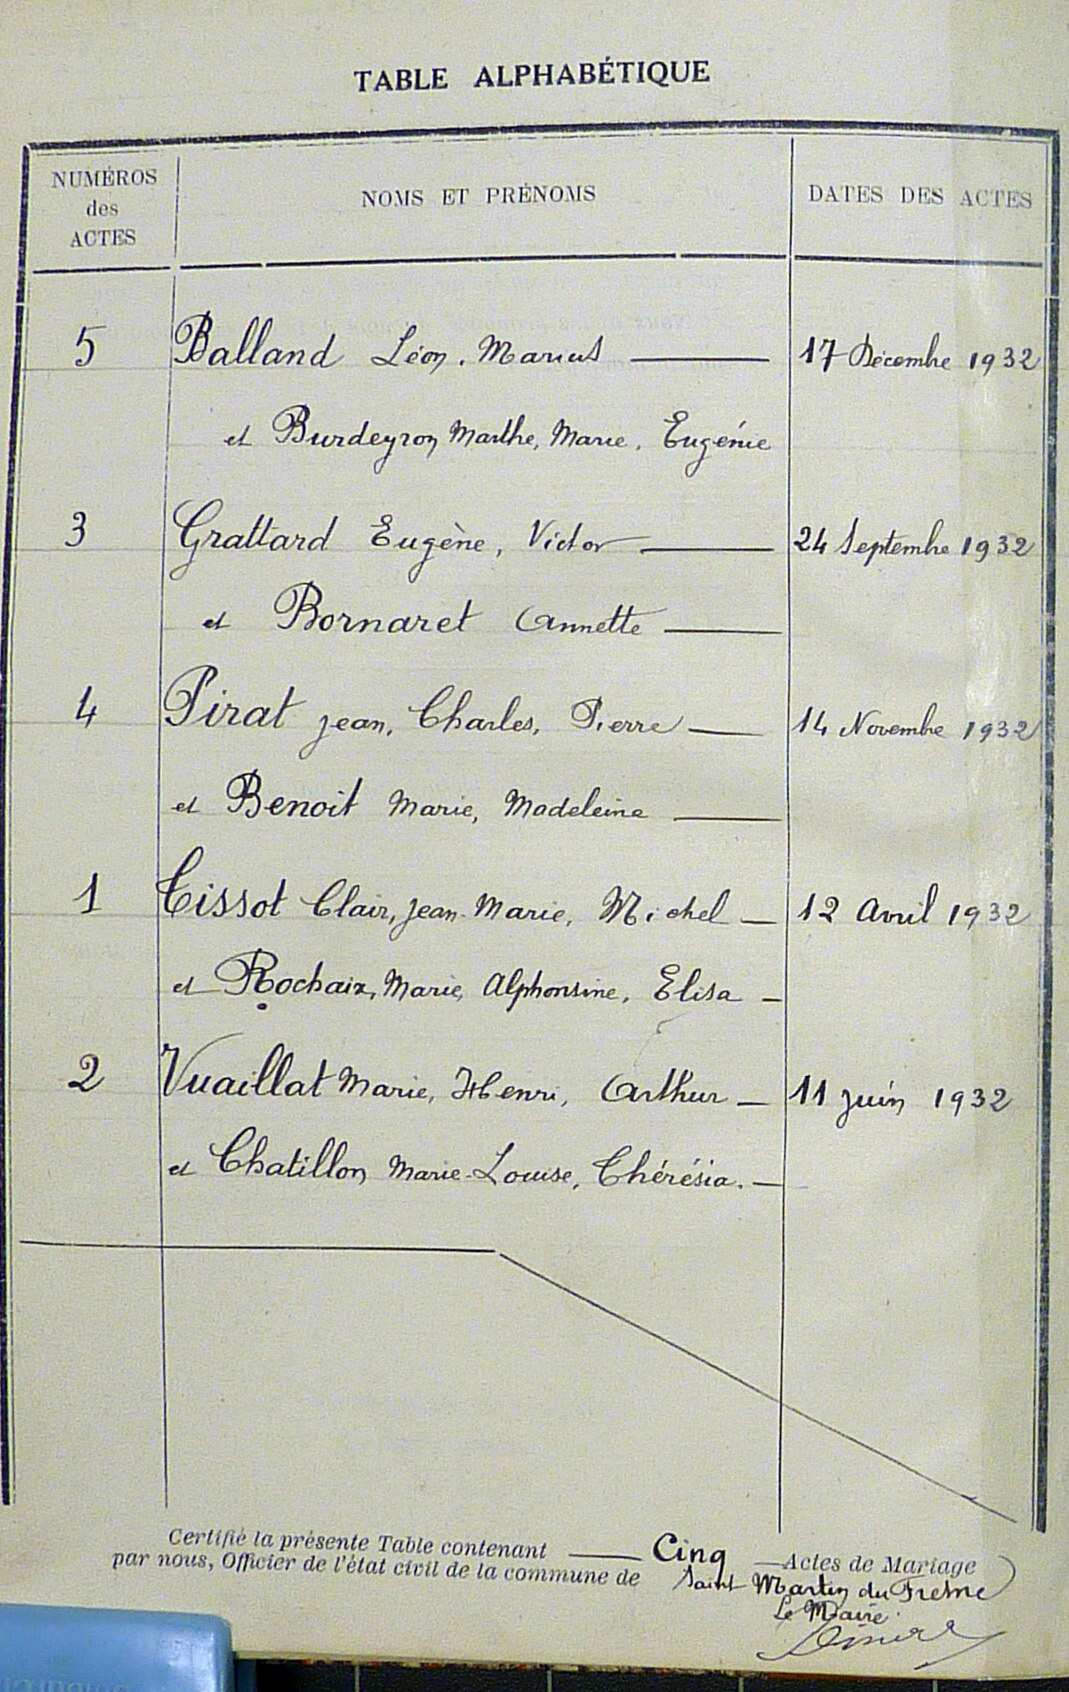 TABLE ALPHABÉTIQUE
NUMÉROS des ACTES NOMS ET PRÉNOMS DATES DES ACTES
5 Balland Léon, Marius 17 Décembre 1932
et Burdeyron Marthe, Marie, Eugénie
3 Grattard Eugène, Victor 24 Septembre 1932
et Bornaret Annette
4 Pirat Jean, Charles, Pierre 14 Novembre 1932
et Benoit Marie, Madeleine
1 Tissot Clair, Jean-Marie, Michel 12 Avril 1932
et Rochaix, Marie, Alphonsine, Elisa
2 Vuaillat Marie, Henri, Arthur 11 Juin 1932
et Chatillon Marie-Louise, Thérésia.
Certifié la présente Table contenant Cinq Actes de Mariage
par nous, Officier de l'état civil de la commune de Saint Martin du Fresne
Le Maire